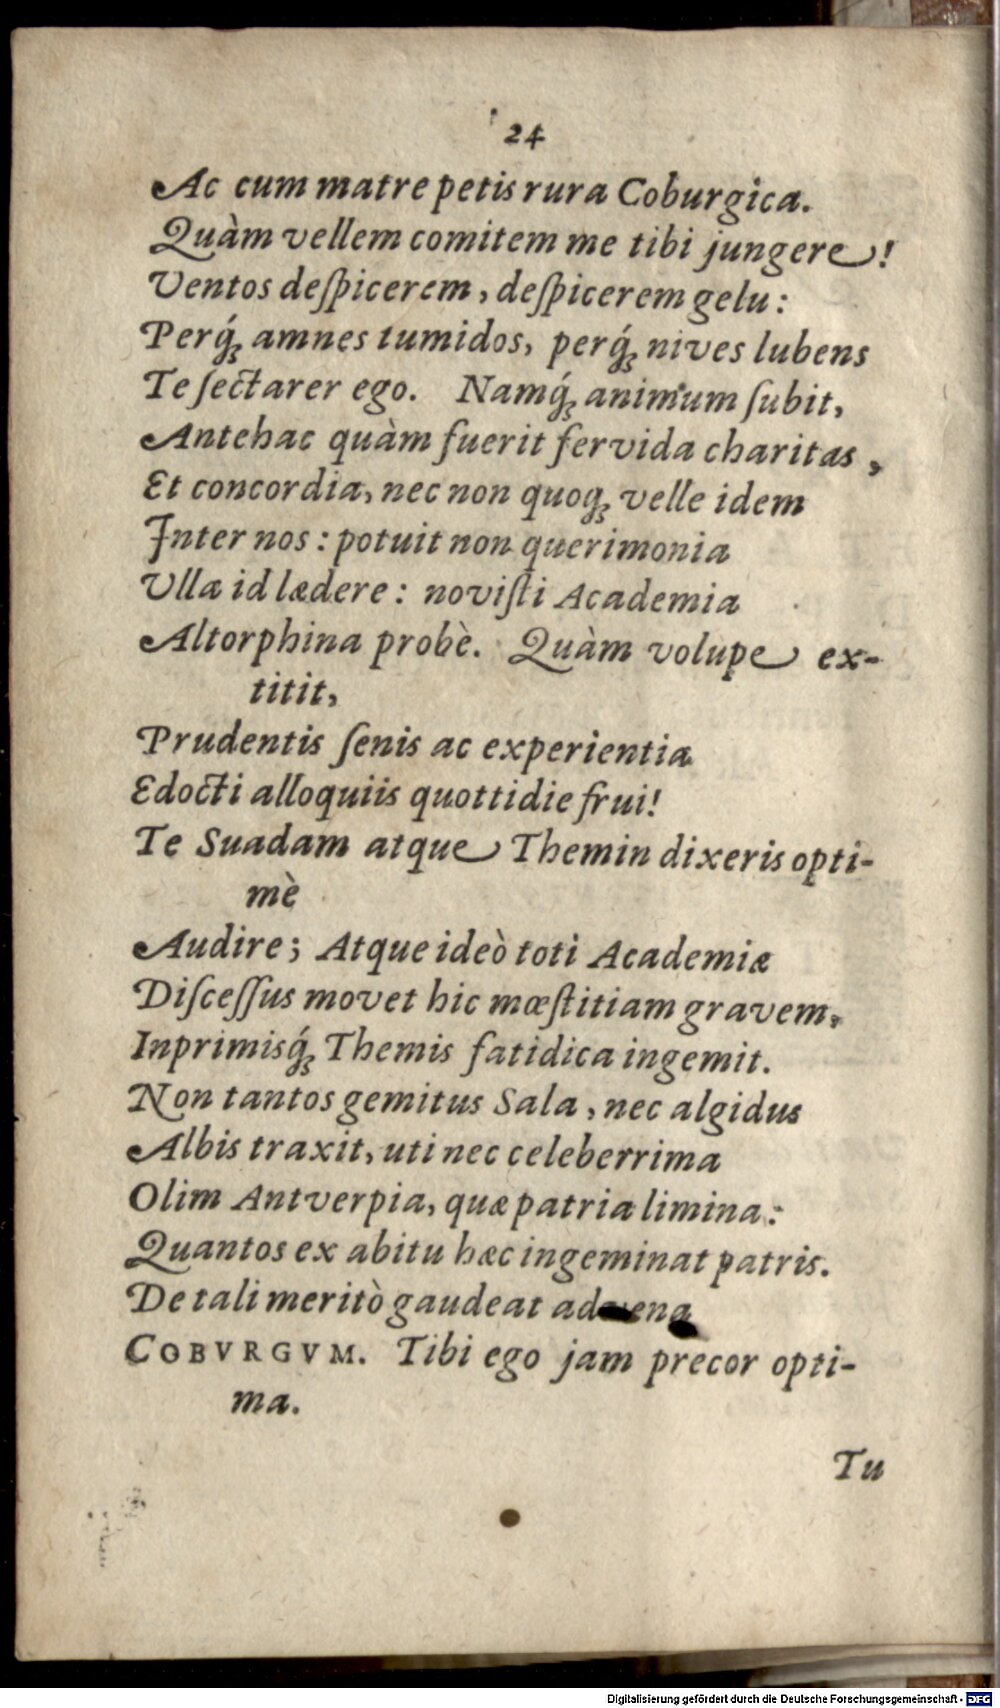 24
Ac cum matre petis rura Coburgica.
Quàm vellem comitem me tibi jungere!
Ventos deſpicerem, deſpicerem gelu:
Perq́; amnes tumidos, perq́; nives lubens
Te ſectarer ego. Namq́; animum ſubit,
Antehac quàm fuerit fervida charitas,
Et concordia, nec non quoq; velle idem
Inter nos: potuit non querimonia
Ulla id lædere: noviſti Academia
Altorphina probè. Quàm volupe ex-
titit,
Prudentis ſenis ac experientia
Edocti alloquiis quottidie frui!
Te Suadam atque Themin dixeris opti-
mè
Audire; Atque ideò toti Academiæ
Diſceſſus movet hic mœſtitiam gravem,
Inprimisq́; Themis fatidica ingemit.
Non tantos gemitus Sala, nec algidus
Albis traxit, uti nec celeberrima
Olim Antverpia, quæ patria limina:
Quantos ex abitu hæc ingeminat patris.
De tali meritò gaudeat advena
COBVRGVM. Tibi ego jam precor opti-
ma.
Tu
Digitalisierung gefördert durch die Deutsche Forschungsgemeinschaft - DFG